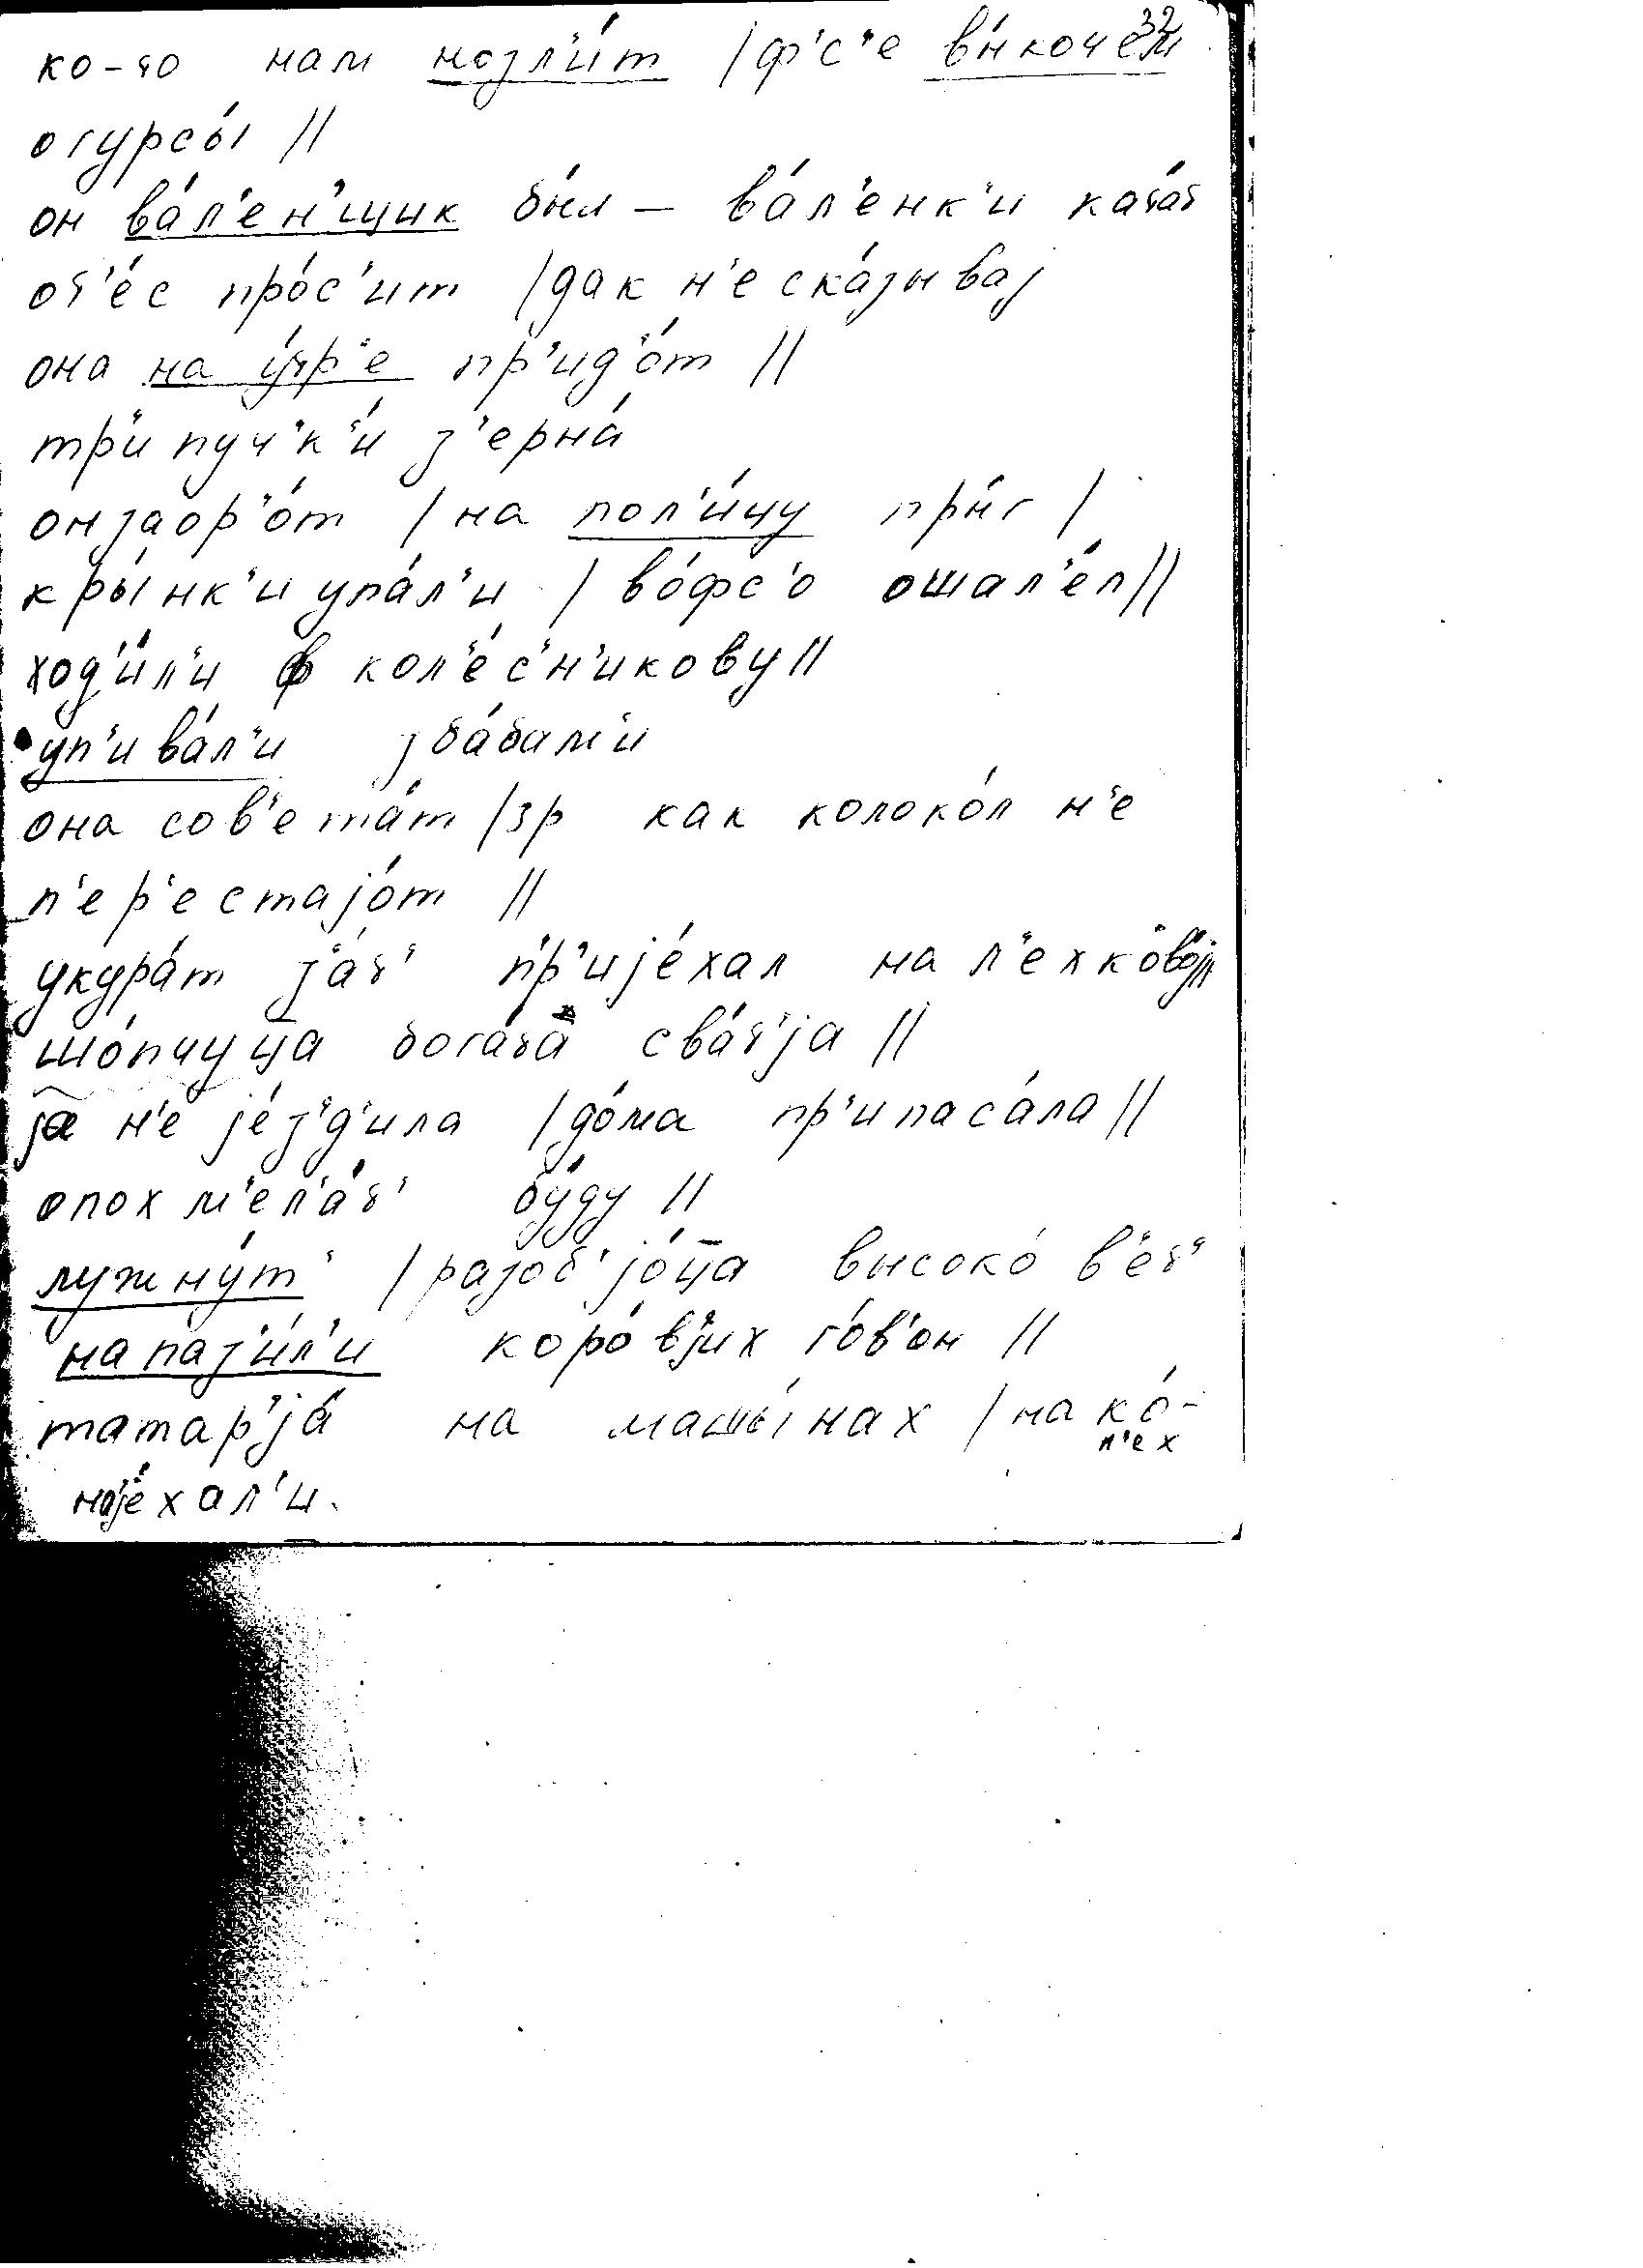 32
ко-то нам назл'и́т | ф'с'е вы́кочем
огурсы́ ||
он ва́л'ен'щик бы́л – ва́л'енк'и ката́т
от'е́с про́с'ит | дак н'е ска́зывај
она на у́тр'е пр'ид'о́т ||
тр'и пуч'к'и́ з'ерна́
он заор'о́т | на пол'и́цу пры́г |
кры́нк'и упа́л'и | во́фс'о ошал'е́л ||
ход'и́л'и в кол'е́с'н'икову ||
уп'ива́л'и зба́бам'и
она сов'ета́т | зр как колоко́л н'е
п'ер'естајо́т ||
укура́т з'а́т' пр'ије́хал на л'ехково́ј
шо́пчуца бога́та сва́т'ја ||
ја н'е је́з'д'ила | до́ма пр'ипаса́ла ||
опохм'ел'а́т' бу́ду ||
лужну́т' | разоб'јо́ца высоко́ в'ет'
напаз'и́л'и коро́вјих го́в'он ||
татар'ја́ на машы́нах | на ко́-
н'ех
наје́хал'и.